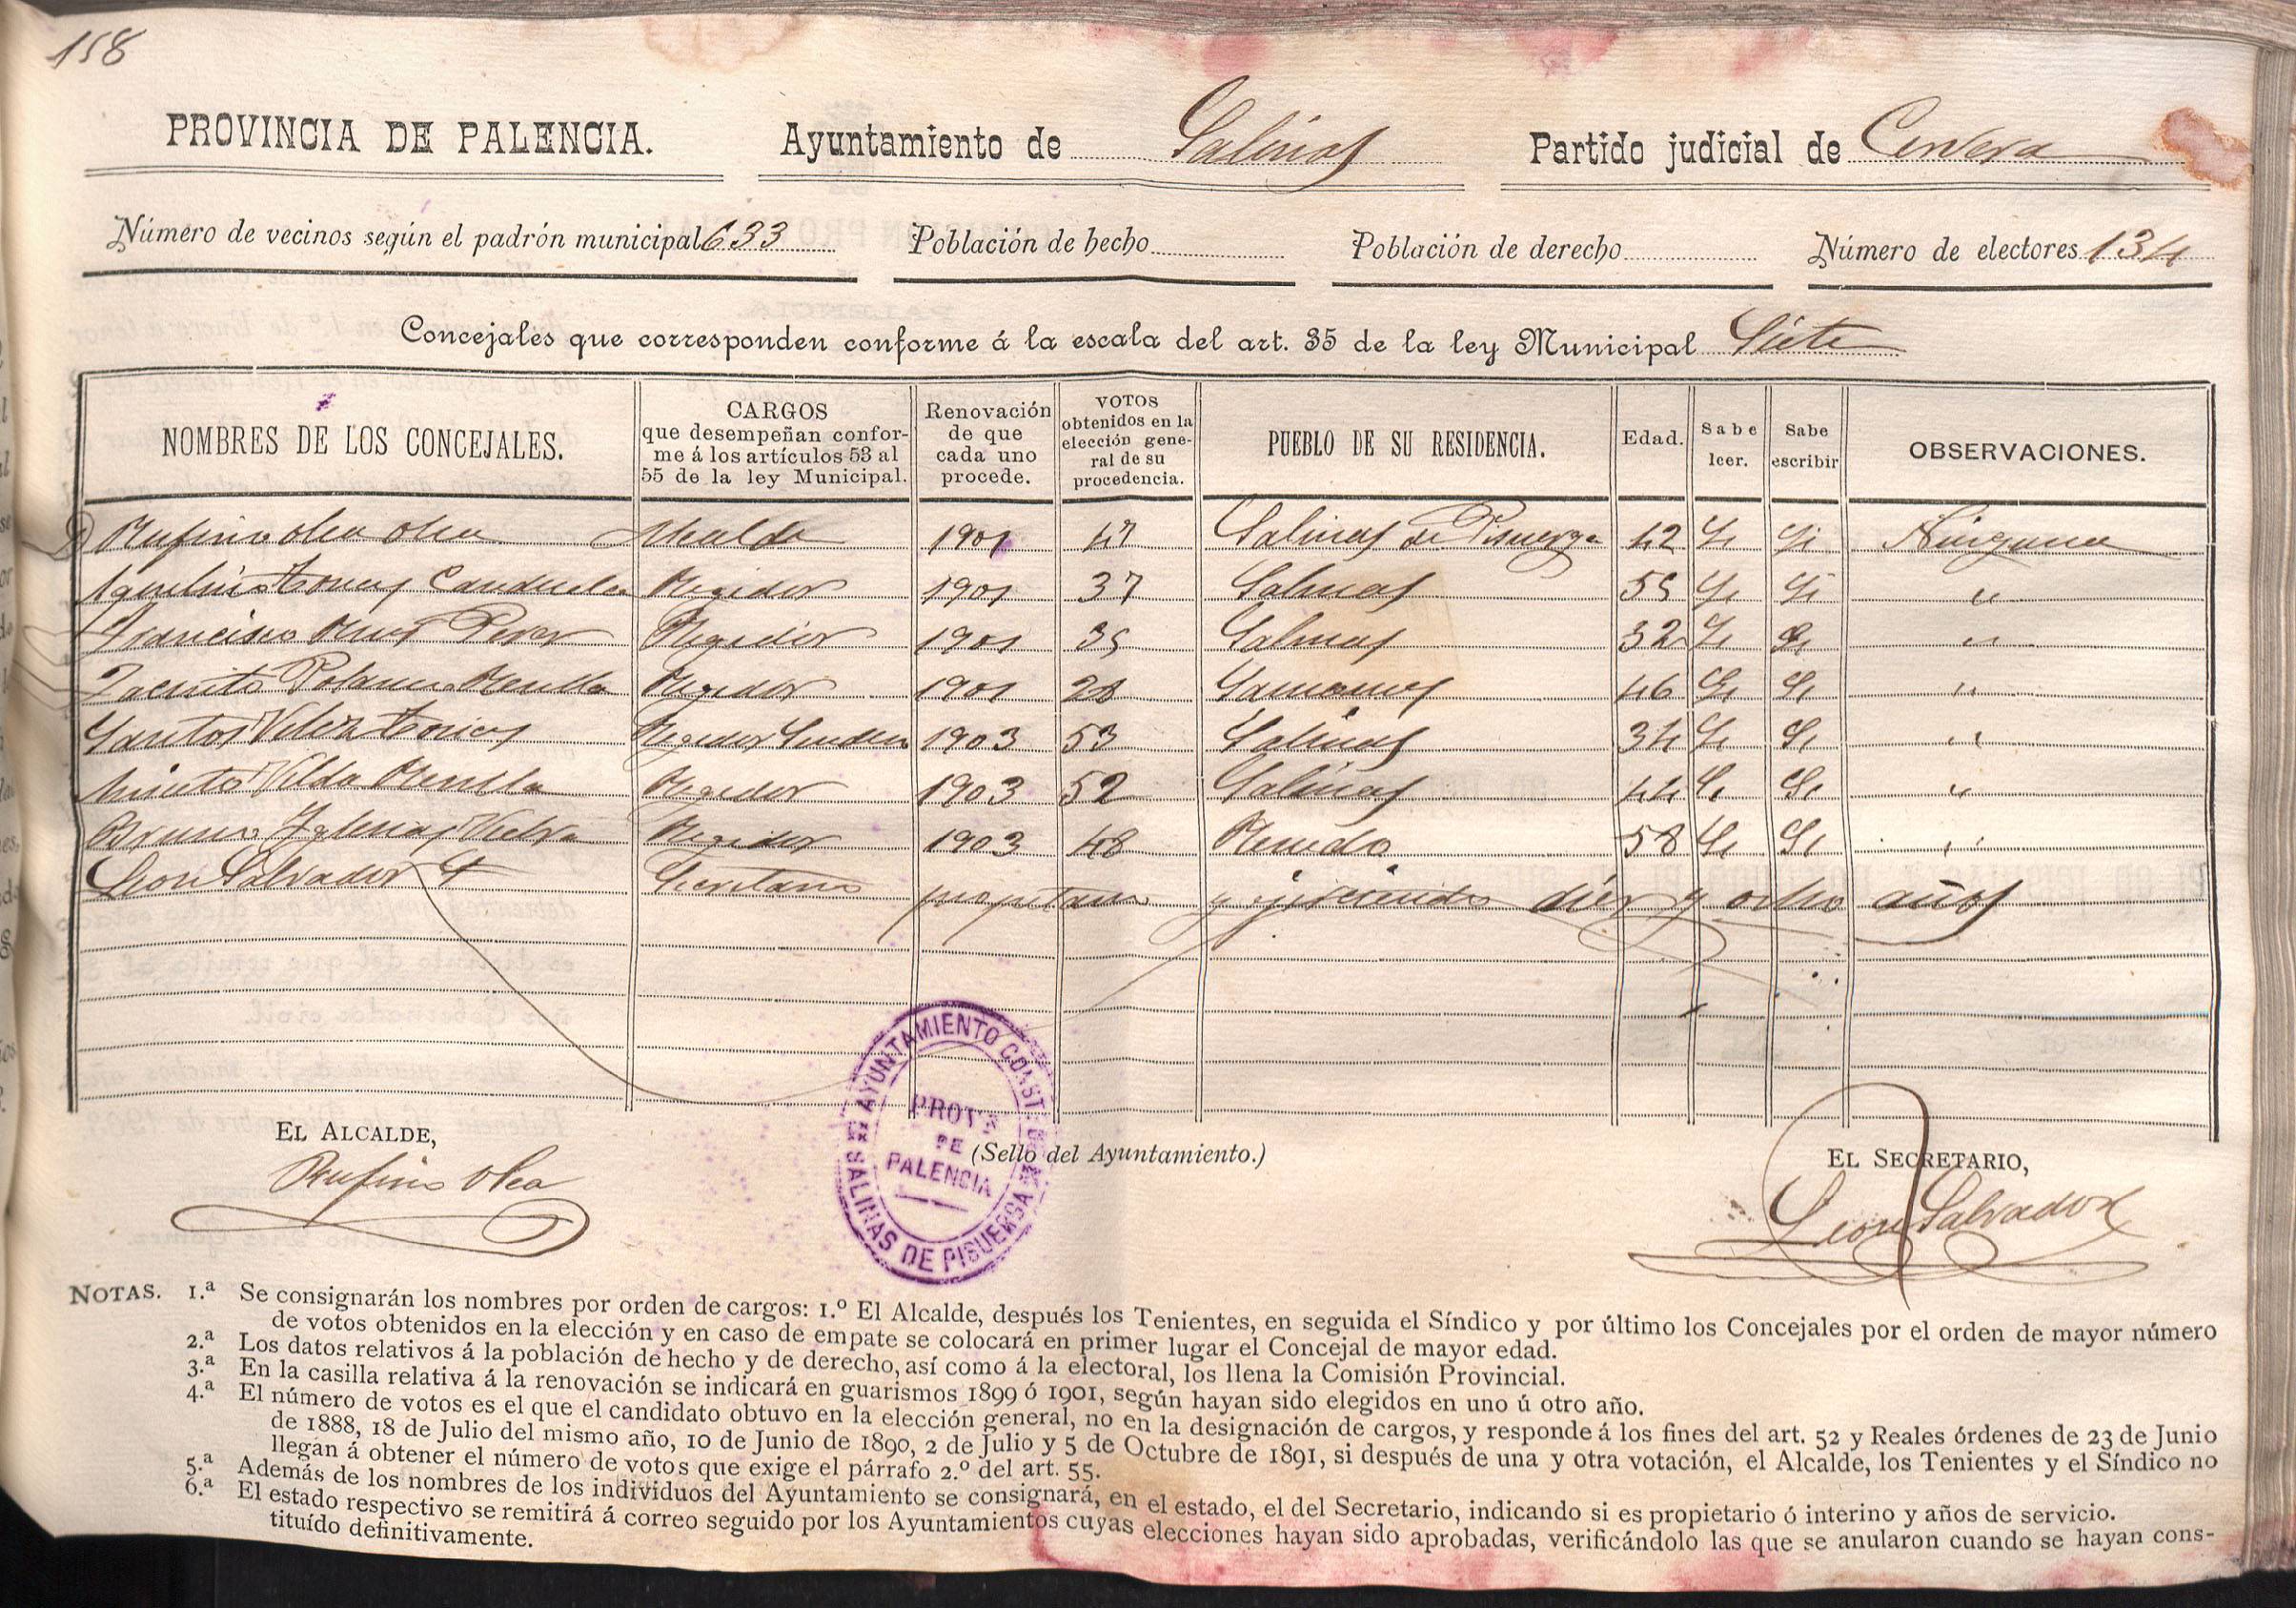 158
PROVINCIA DE PALENCIA. Ayuntamiento de Salinas Partido judicial de Cervera
Número de vecinos según el padrón municipal 633 Población de hecho Población de derecho Número de electores 134
Concejales que corresponden conforme á la escala del art. 35 de la ley Municipal Siete
NOMBRES DE LOS CONCEJALES. CARGOS que desempeñan conforme á los artículos 53 al 55 de la ley Municipal. Renovación de que cada uno procede. VOTOS obtenidos en la elección general de su procedencia. PUEBLO DE SU RESIDENCIA. Edad. Sabe leer. Sabe escribir OBSERVACIONES.
Rufino Olea Olea Alcalde 1901 47 Salinas de Pisuerga 42 Si Si Ninguna
Torices Canduela Regidor 1901 37 Salinas 55 Si Si "
Francisco Perez Regidor 1901 35 Salinas 32 Si Si "
Jacinto Polanco Revilla Regidor 1901 28 46 Si Si "
Santos Velez Torices Regidor Sindico 1903 53 Salinas 34 Si Si "
Aniceto Vilda Revilla Regidor 1903 52 Salinas 44 Si Si "
Bruno Iglesias Regidor 1903 48 Renedo 58 Si Si "
Leon Salvador Secretario propietario y ejerciendo diez y ocho años
EL ALCALDE, (Sello del Ayuntamiento.) EL SECRETARIO,
Rufino Olea Leon Salvador
AYUNTAMIENTO CONST. DE SALINAS DE PISUERGA
PROVª
DE
PALENCIA
NOTAS. 1.ª Se consignarán los nombres por orden de cargos: 1.º El Alcalde, después los Tenientes, en seguida el Síndico y por último los Concejales por el orden de mayor número
de votos obtenidos en la elección y en caso de empate se colocará en primer lugar el Concejal de mayor edad.
2.ª Los datos relativos á la población de hecho y de derecho, así como á la electoral, los llena la Comisión Provincial.
3.ª En la casilla relativa á la renovación se indicará en guarismos 1899 ó 1901, según hayan sido elegidos en uno ú otro año.
4.ª El número de votos es el que el candidato obtuvo en la elección general, no en la designación de cargos, y responde á los fines del art. 52 y Reales órdenes de 23 de Junio
de 1888, 18 de Julio del mismo año, 10 de Junio de 1890, 2 de Julio y 5 de Octubre de 1891, si después de una y otra votación, el Alcalde, los Tenientes y el Síndico no
llegan á obtener el número de votos que exige el párrafo 2.º del art. 55.
5.ª Además de los nombres de los individuos del Ayuntamiento se consignará, en el estado, el del Secretario, indicando si es propietario ó interino y años de servicio.
6.ª El estado respectivo se remitirá á correo seguido por los Ayuntamientos cuyas elecciones hayan sido aprobadas, verificándolo las que se anularon cuando se hayan cons-
tituído definitivamente.